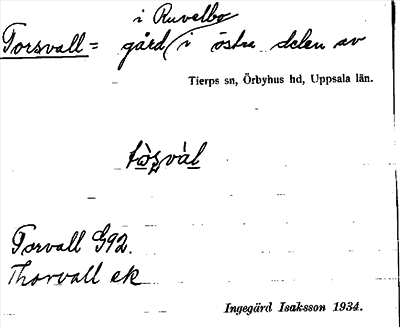 i Ruvelbo
Torsvall = gård i östra delen av
Tierps sn, Örbyhus hd, Uppsala län.
Torvall G92.
Thorvall ek
Ingegärd Isaksson 1934.